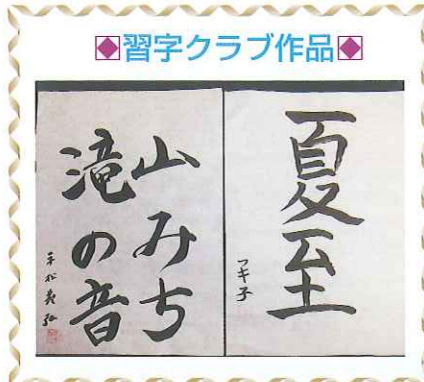 ◆習字クラブ作品◆
夏至
フキ子
山みち
滝の音